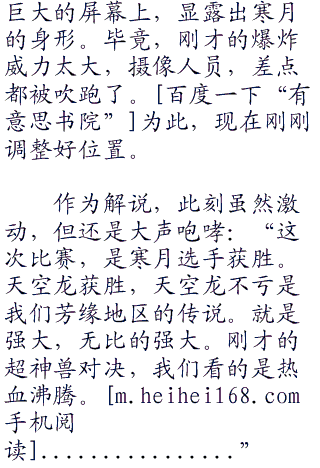 巨大的屏幕上，显露出寒月
的身形。毕竟，刚才的爆炸
威力太大，摄像人员，差点
都被吹跑了。[百度一下“有
意思书院”]为此，现在刚刚
调整好位置。
作为解说，此刻虽然激
动，但还是大声咆哮：“这
次比赛，是寒月选手获胜。
天空龙获胜，天空龙不亏是
我们芳缘地区的传说。就是
强大，无比的强大。刚才的
超神兽对决，我们看的是热
血沸腾。[m.heihei168.com
手机阅
读]................”